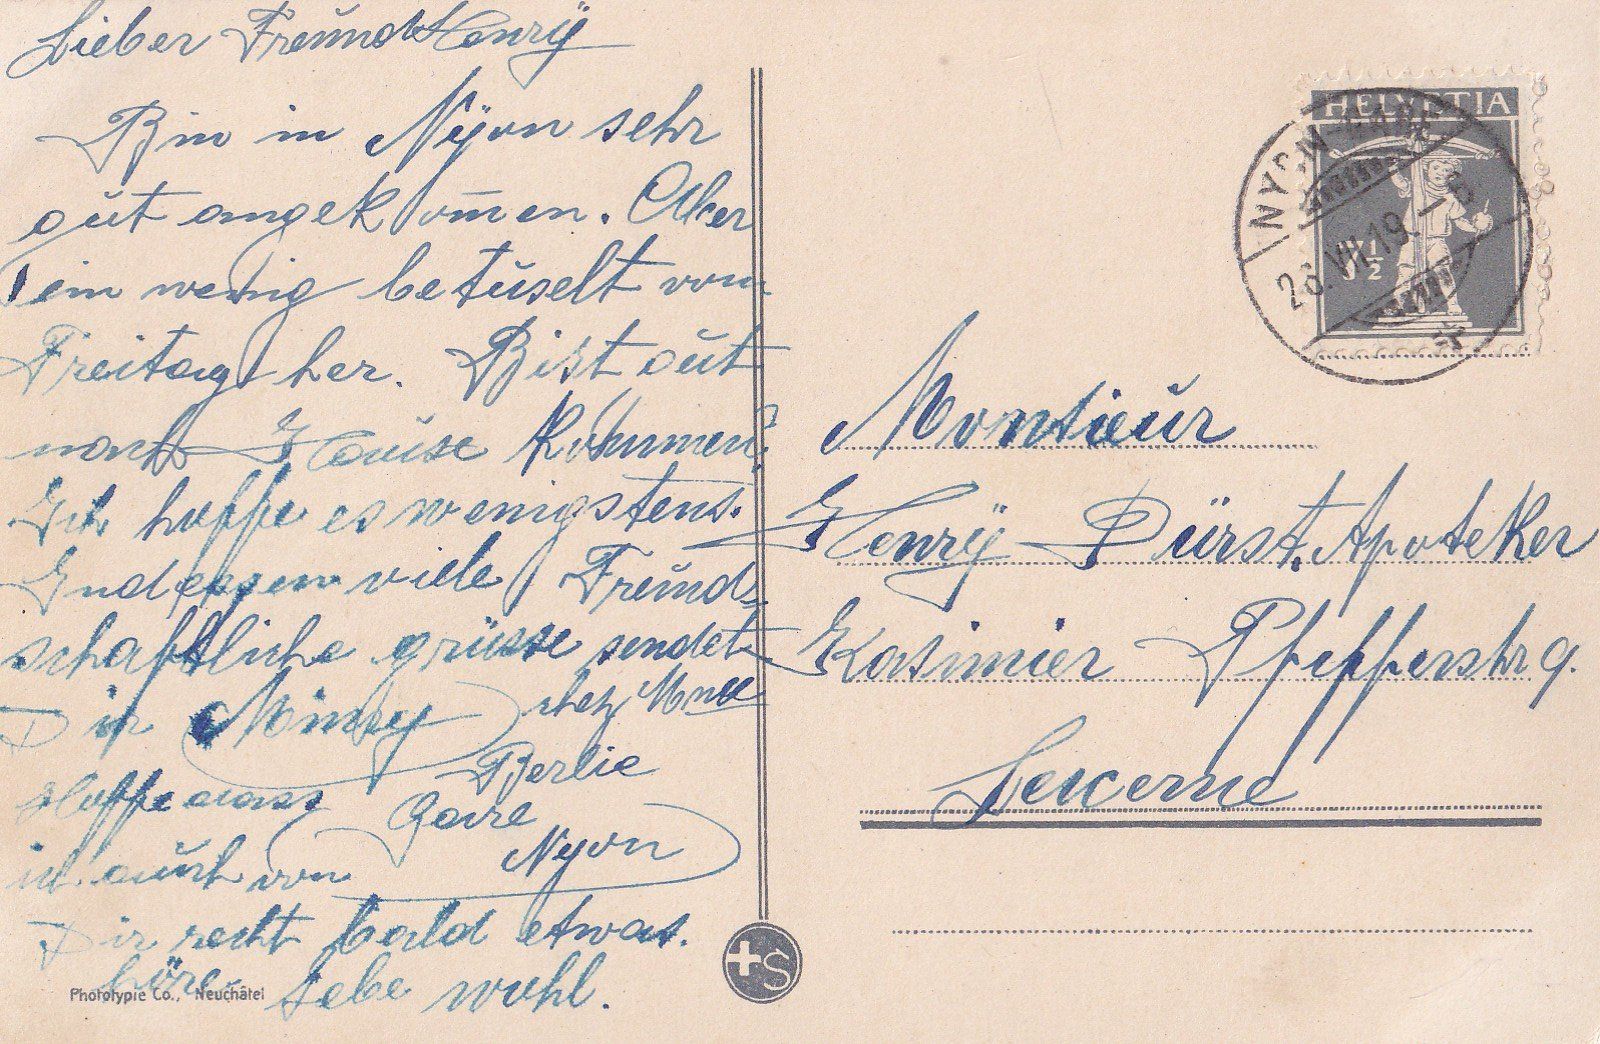 Lieber Freund Henrÿ
Bin in Nÿon sehr
gut angekom̄en. Aber
ein wenig betuselt vom
Freitag her. Bist gut
nach Hause kohmmen?
Ich hoffe es wenigstens.
Indessen viele Freund-
schaftliche grüsse sendet
Dir Mimy
chez Mme
Berlie
Gare
Nyon
Hoffe dass
ich auch von
Dir recht bald etwas.
höre. Lebe wohl.
Phototypie Co., Neuchâtel
+S
HELVETIA
7½
NYON-GARE
26.VII.19.
Montieur
Henrÿ Dürst. Apoteker
Kasimier Pfefferstr 9.
Lucerne